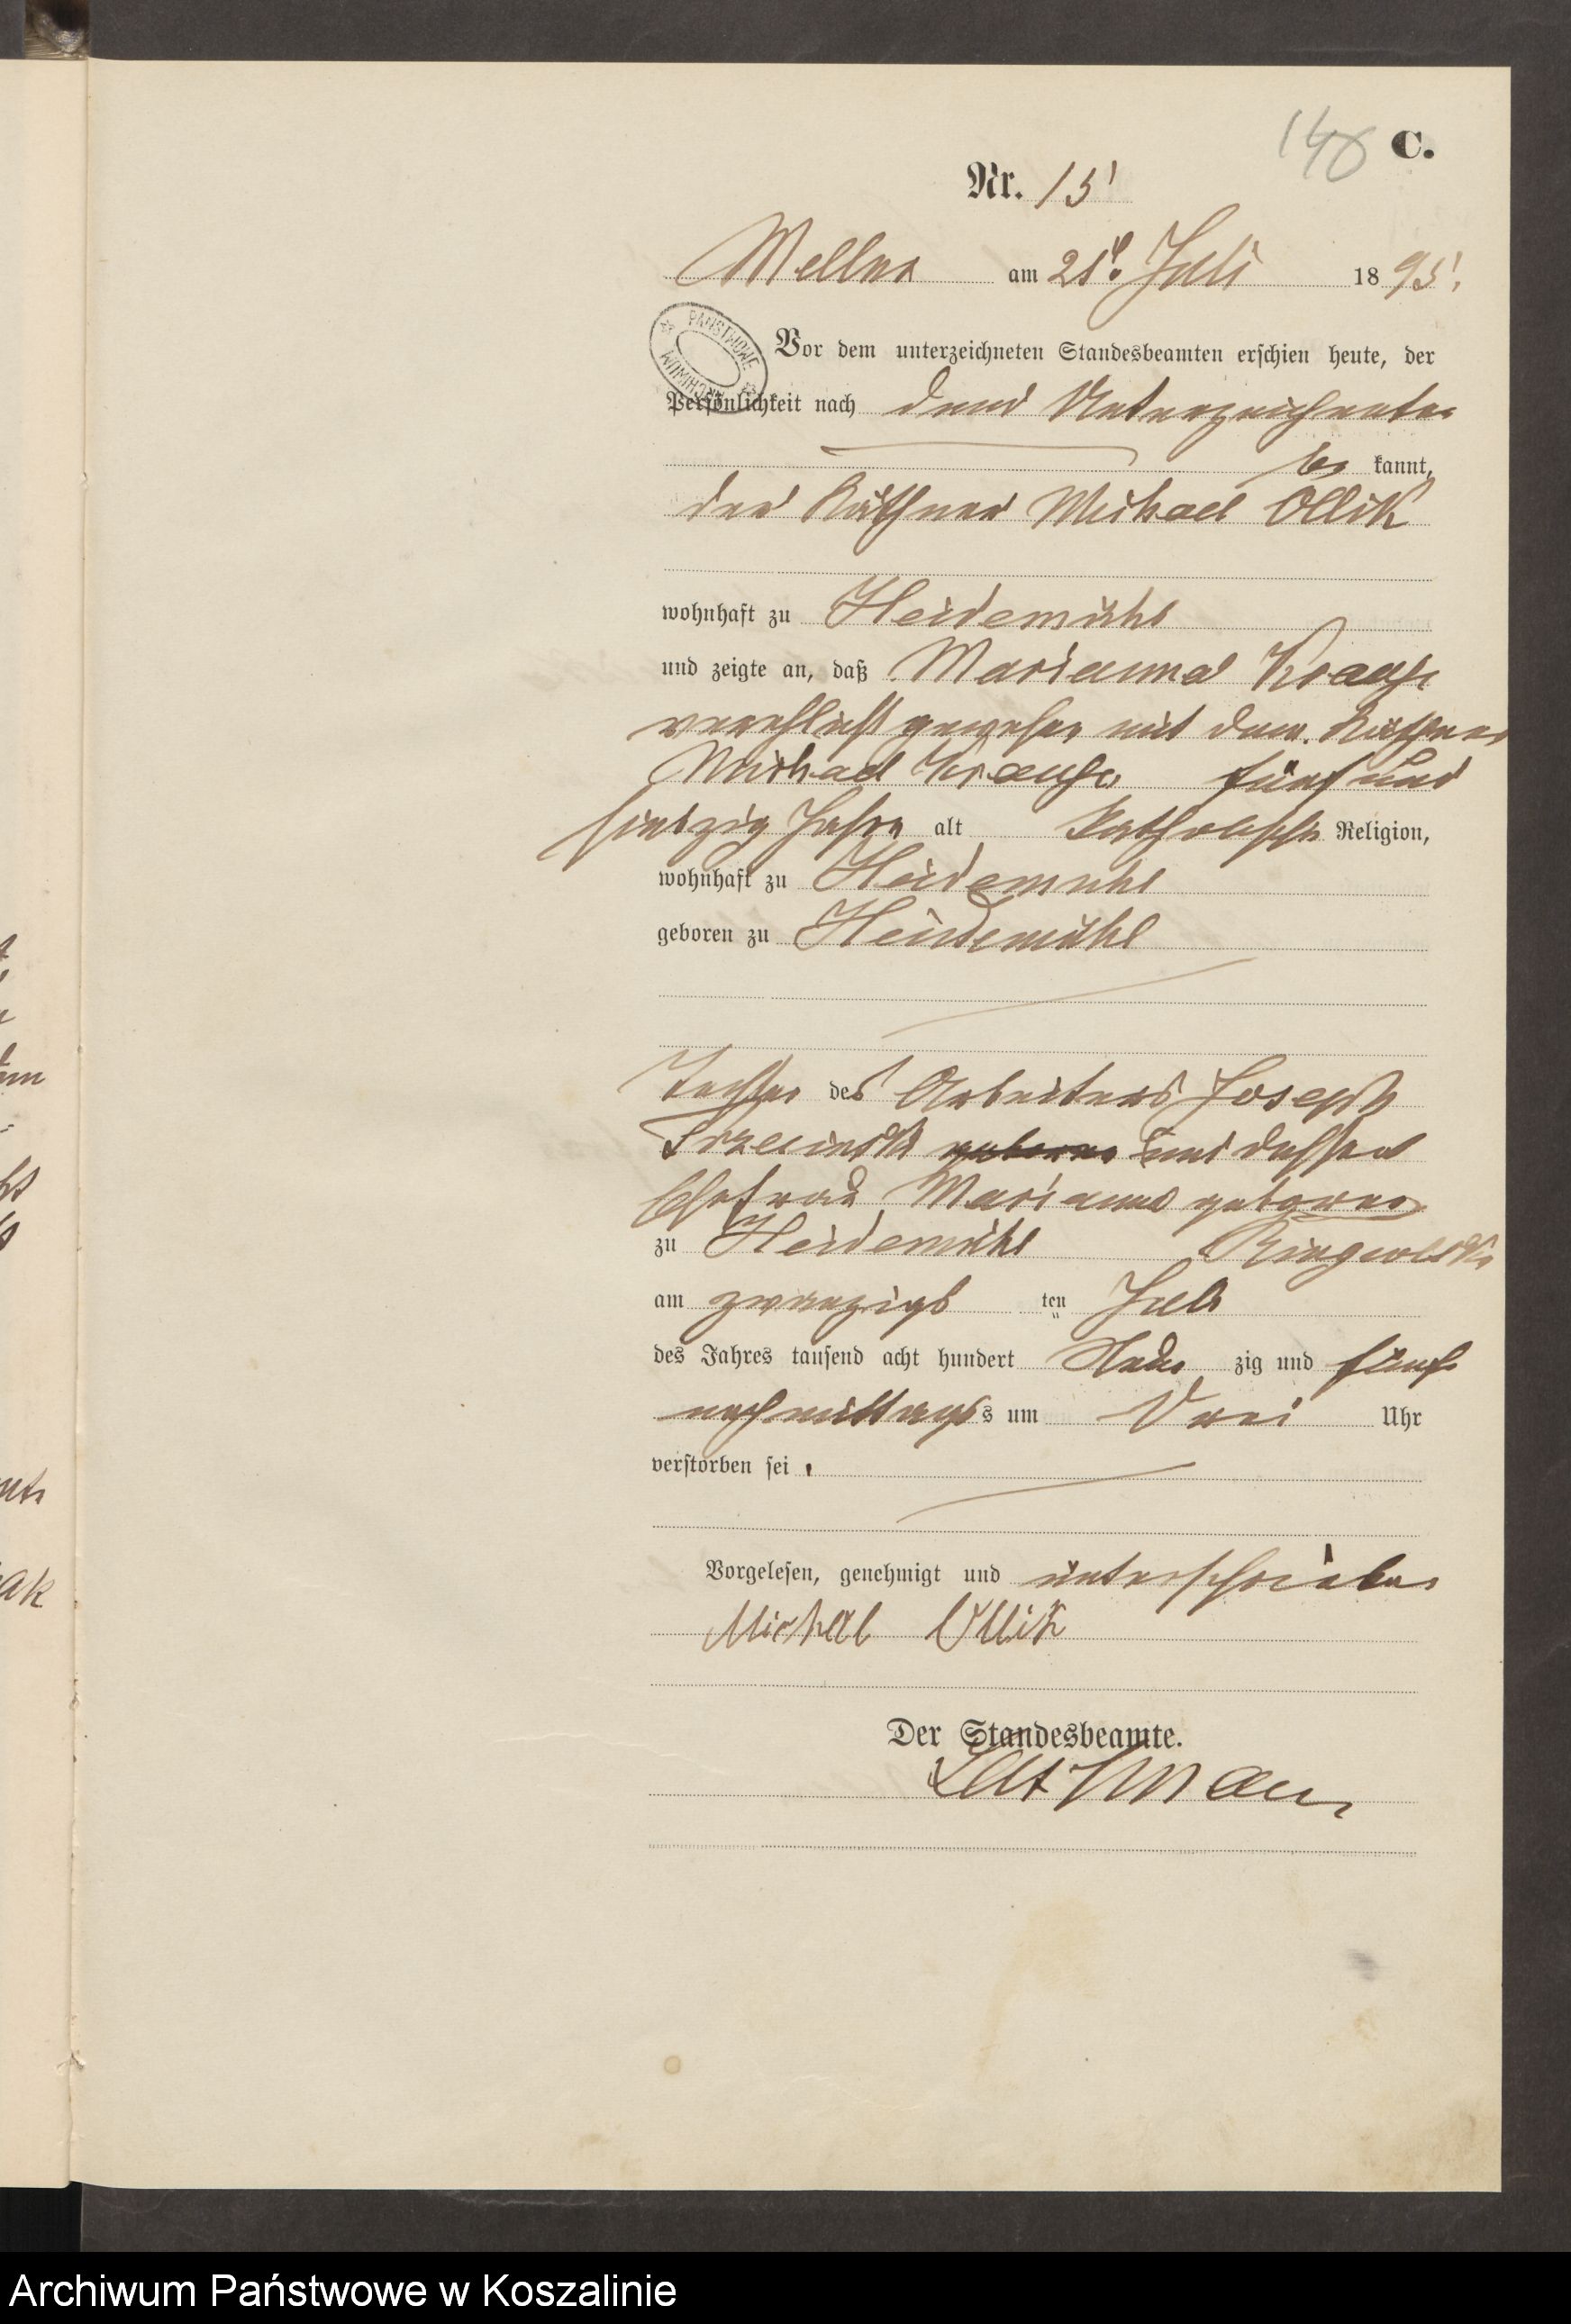 148 C.
Nr. 15
Mellno am 21. Juli 1895.
PANSTWOWE ARCHIWUM
Vor dem unterzeichneten Standesbeamten erschien heute, der
Persönlichkeit nach dem Unterzeichneten
be kannt,
der Käthner Michael Ollik
wohnhaft zu Heidemühl
und zeigte an, daß Marianna Krause
verehlicht gewesen mit dem Käthner
Michael Krause fünf und
siebzig Jahre alt, katholischer Religion,
wohnhaft zu Heidemühl
geboren zu Heidemühl
Tochter des Arbeiters Joseph
und dessen
Ehefrau Marianna geborene
zu Heidemühl
am zwanzigs ten Juli
des Jahres tausend acht hundert Neun zig und fünf
nachmittags um Drei Uhr
verstorben sei.
Vorgelesen, genehmigt und unterschrieben
Michal Ollik
Der Standesbeamte.
Archiwum Państwowe w Koszalinie